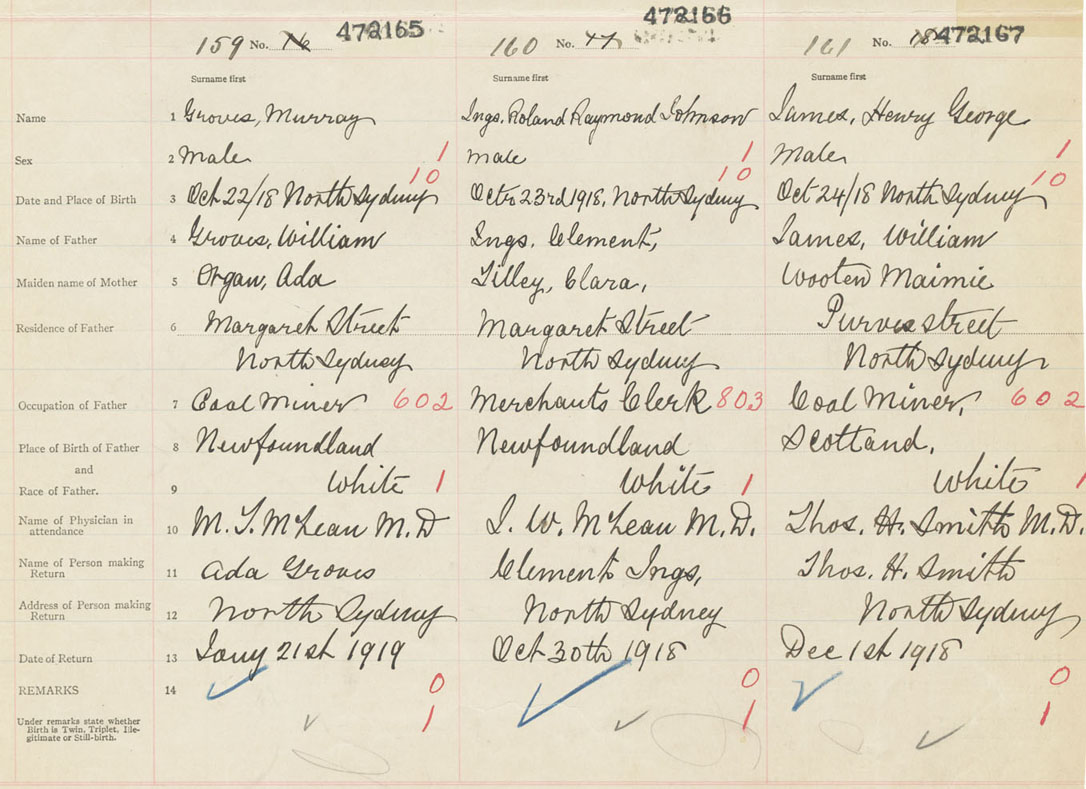 159 No. 16 472165 160 No. 47 472166 161 No. 18 472167
Surname first Surname first Surname first
Name 1 Groves, Murray Ings. Roland Raymond Johnson James, Henry George
Sex 2 Male 1 Male 1 Male 1
10 10 10
Date and Place of Birth 3 Oct 22/18 North Sydney Octr 23rd 1918, North Sydney Oct 24/18 North Sydney
Name of Father 4 Groves, William Ings. Clement, James, William
Maiden name of Mother 5 Organ, Ada Tilley, Clara, Wooten Maimie
Residence of Father 6 Margaret Street Margaret Street Purves street
North Sydney North Sydney North Sydney
Occupation of Father 7 Coal Miner 602 Merchants Clerk 803 Coal Miner, 602
Place of Birth of Father 8 Newfoundland Newfoundland Scotland,
and
Race of Father. 9 White 1 White 1 White 1
Name of Physician in
attendance 10 M. T. McLean M.D I. W. McLean M.D. Thos. H. Smith M.D.
Name of Person making
Return 11 Ada Groves Clement Ings, Thos. H. Smith
Address of Person making
Return 12 North Sydney North Sydney North Sydney
Date of Return 13 Jany 21st 1919 Oct 30th 1918 Dec 1st 1918
REMARKS 14 0 0 0
Under remarks state whether
Birth is Twin, Triplet, Ille-
gitimate or Still-birth. 1 1 1